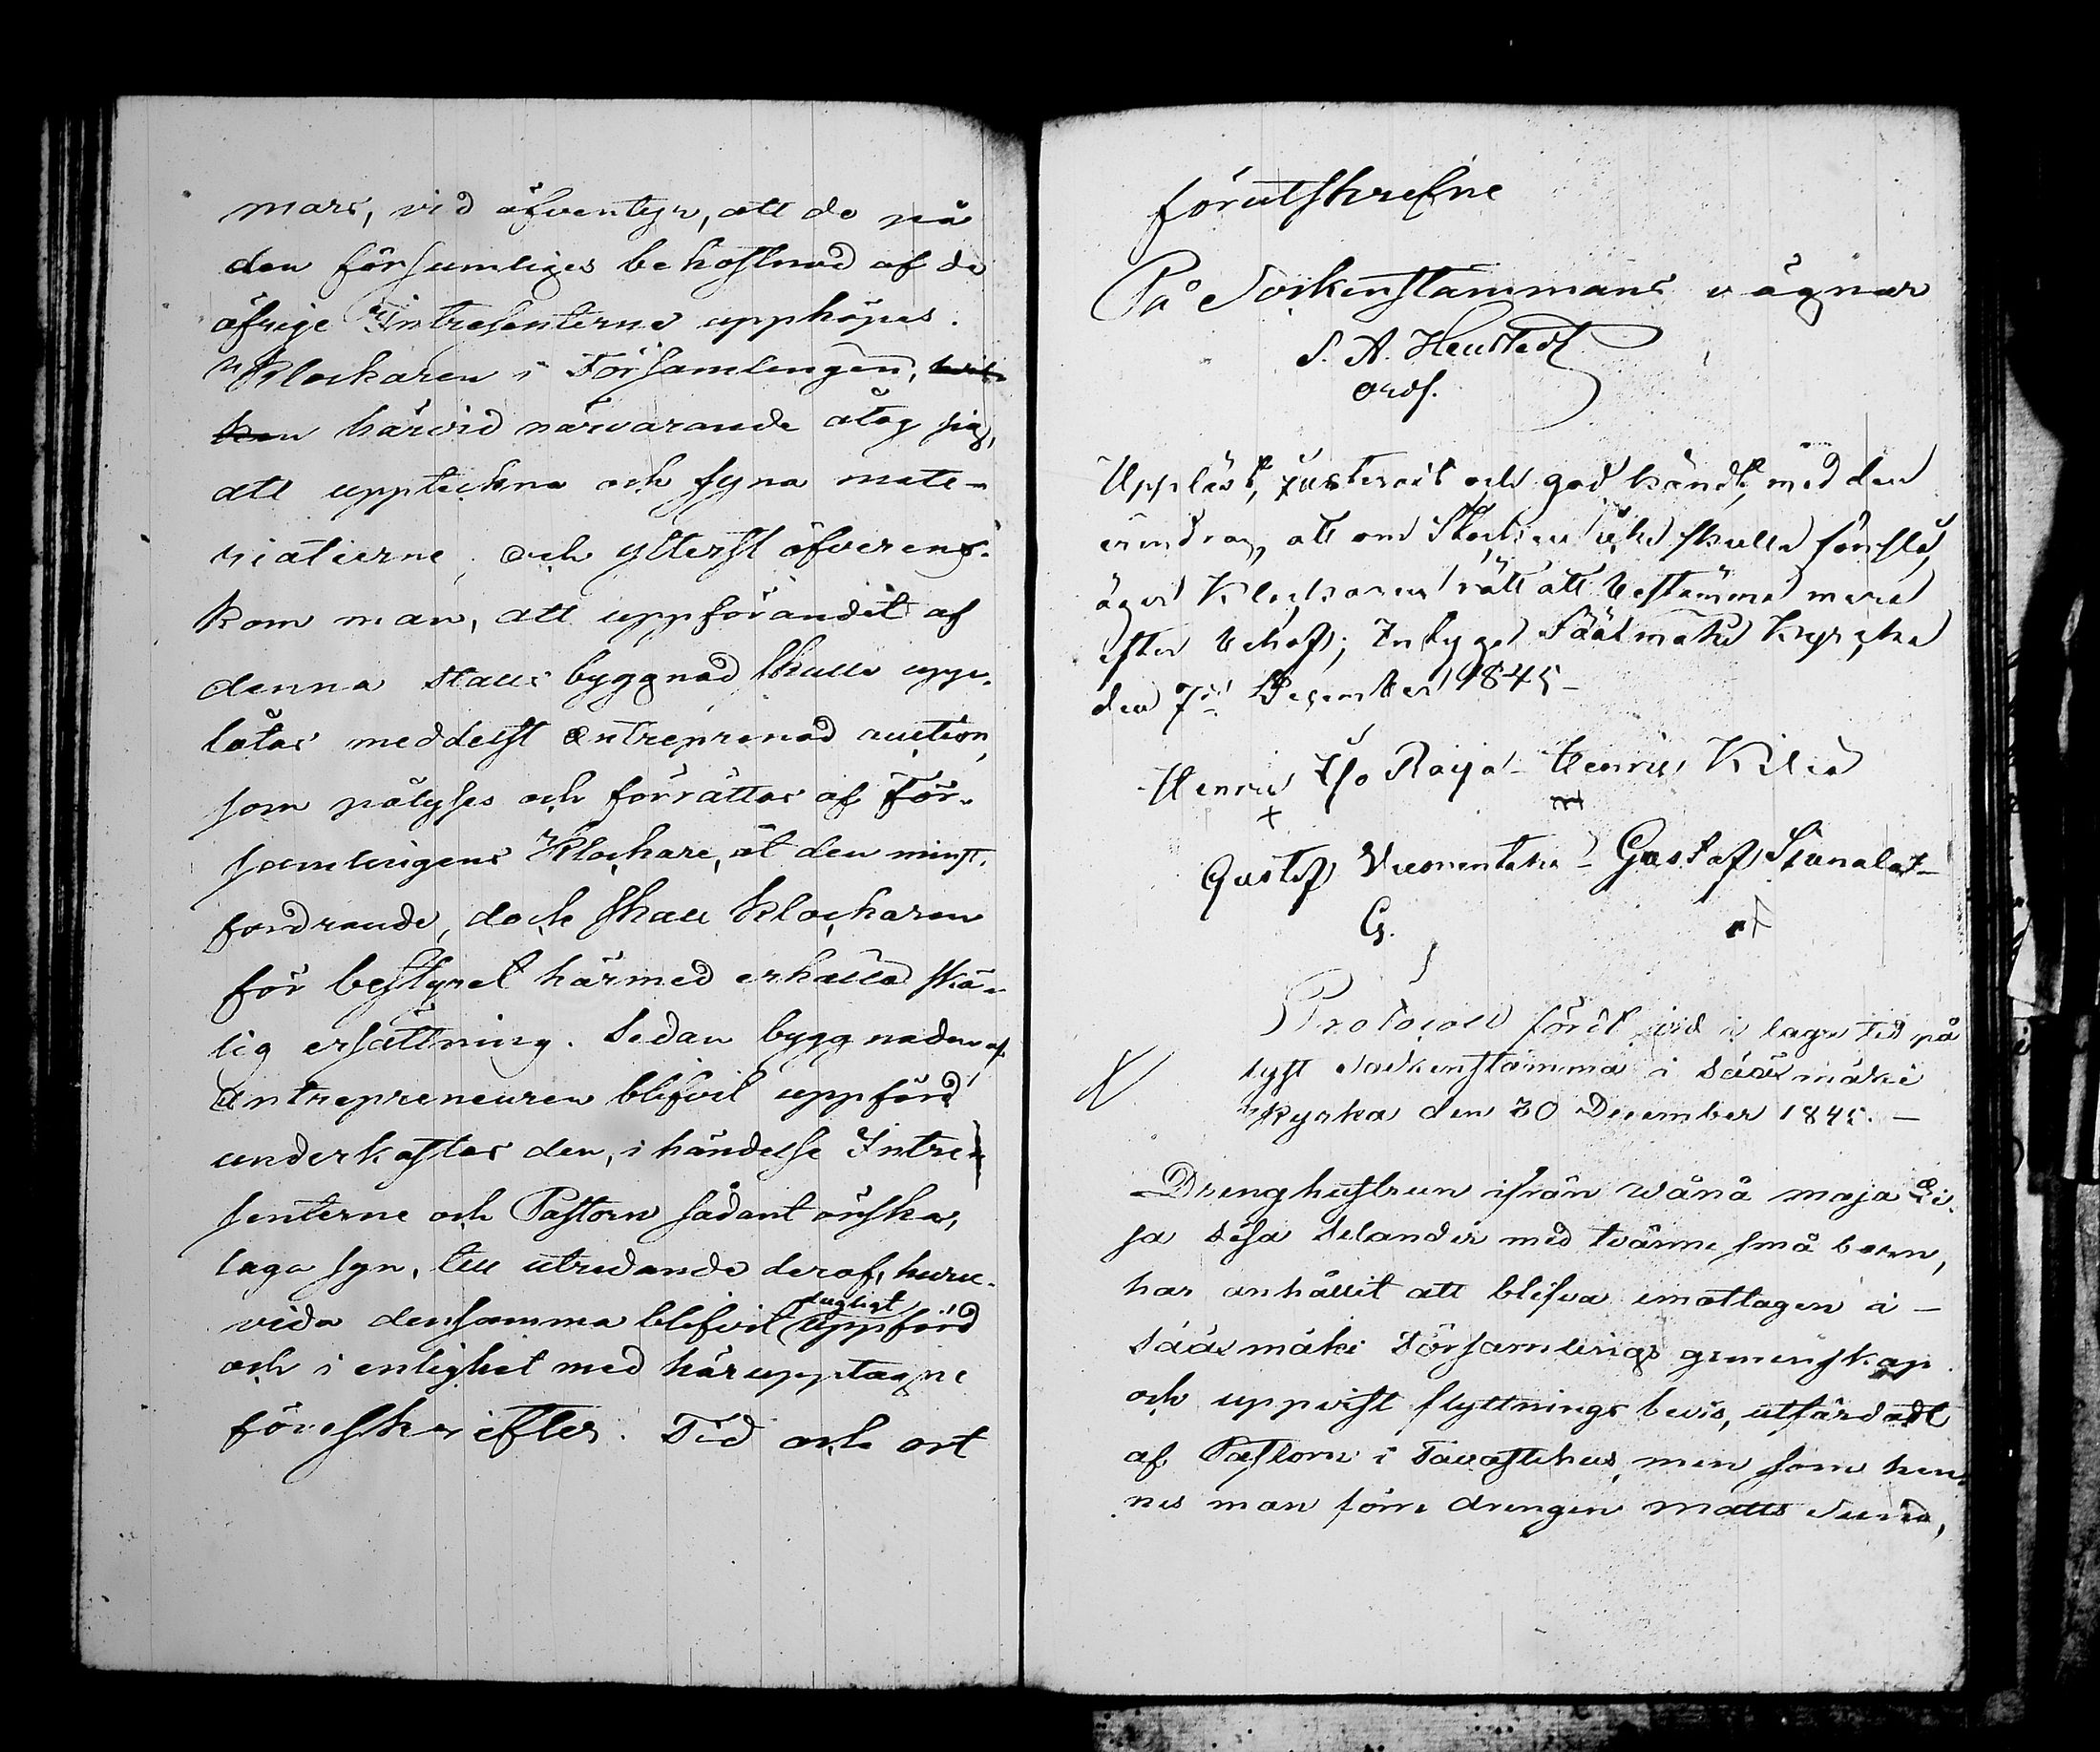 mars, vid äfventyr, att de på
den försumliges bekostnad af de
öfrige Intresenterne upphöpes.
Klockaren i Församlingen, hvil-
ken härvid närvarande åtog sig,
att uppteckna och syna mate-
rialierne, och ytterst öfverens-
kom man, att uppförandet af
denna stalls byggnad skulle upp-
låtas meddelst Entreprenad auction,
som pålyses och förrättas af För-
samlingens Klockare, åt den minst
fordrande, dock skall Klockaren
för bestyret härmed erhålla skä-
lig ersättning. Sedan byggnaden af
Entrepreneuren blifvit uppförd
underkastas den, i händelse Intre-
senterne och Pastorn sådant önska,
laga syn, till utredande deraf, huru-
vida densamma blifvit dugligt uppförd
och i enlighet med här upptagne
föreskrifter. Tid och ort
förutskrefne
På Sockenstämmans vägnar
S. A. Heustedt
ordf.
Uppläst, justerait och god kändt, med den
erindran, att om Stocken icke skulle förslå,
äger Klockaren rätt att bestämma mera
efter behof; Intygar Sääxmäki Kyrcka
den 7de December 1845 -
Henric Iso Raija - Henric Kilia
+
Gustaf Vuorentaka - Gustaf
G.
Protocoll fördt vid i laga tid på
lyst Sockenstämma i Sääxmäki
Kyrka den 30 December 1845. -
Drenghustrun ifrån Wånå Maja Li-
sa Selander med tvänne små barn,
har anhållit att blifva emottagen i -
Sääxmäki Församlings gemenskap
och uppvist flyttnings bevis, utfärdadt
af Pastorn i Tavastehus, men som hen-
nes man förre drengen Matts Sund,